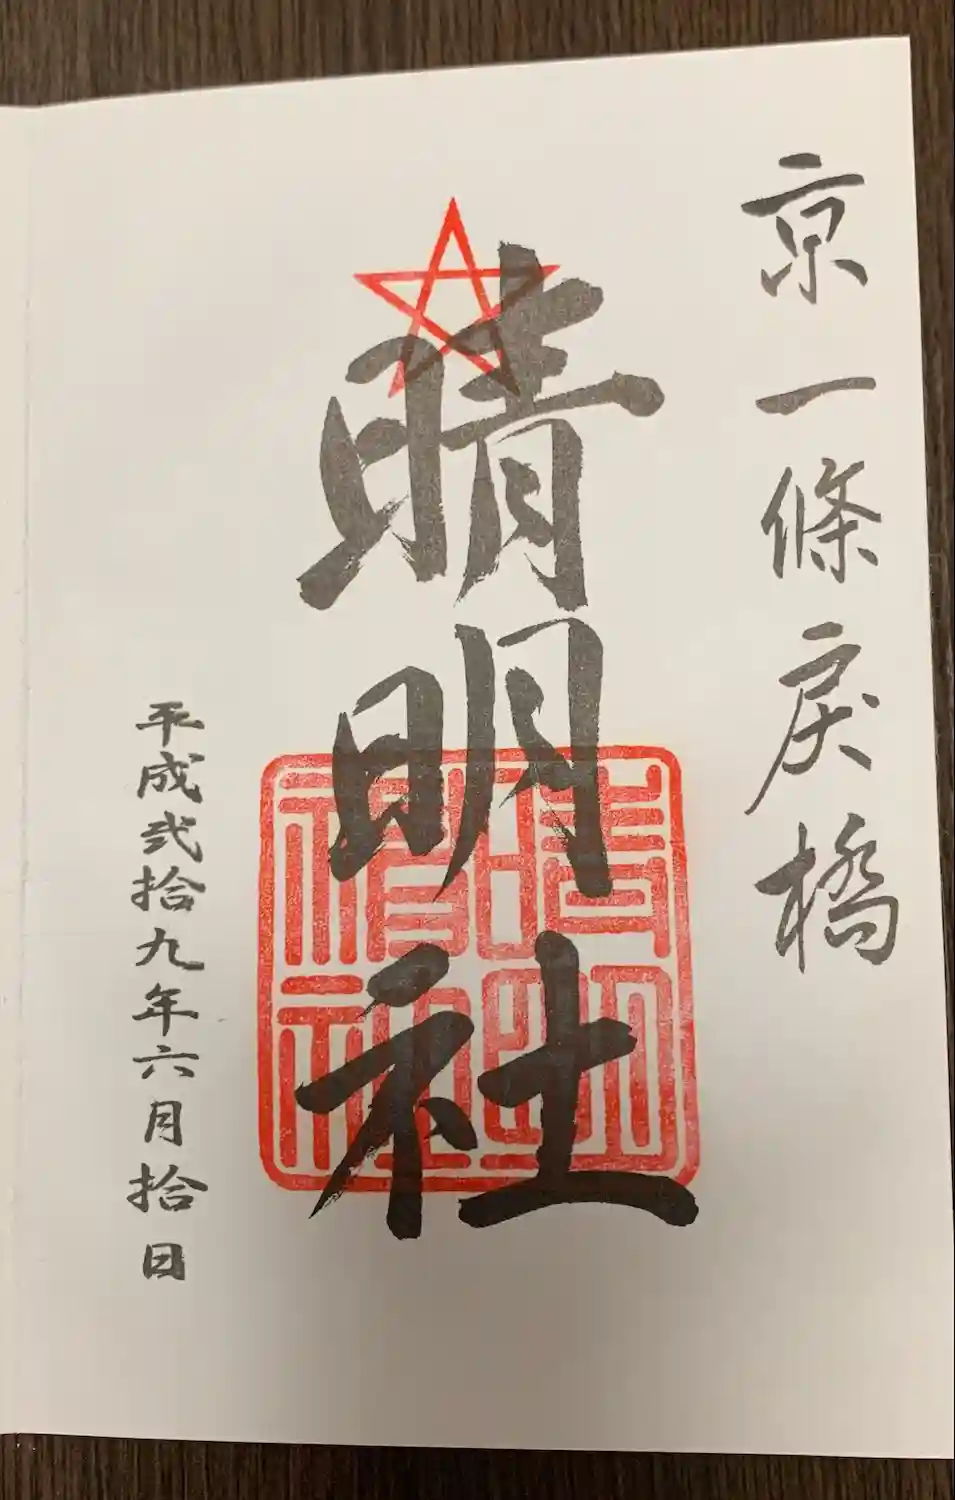 京一條戻橋
晴明社
晴明神社
平成弐拾九年六月拾日